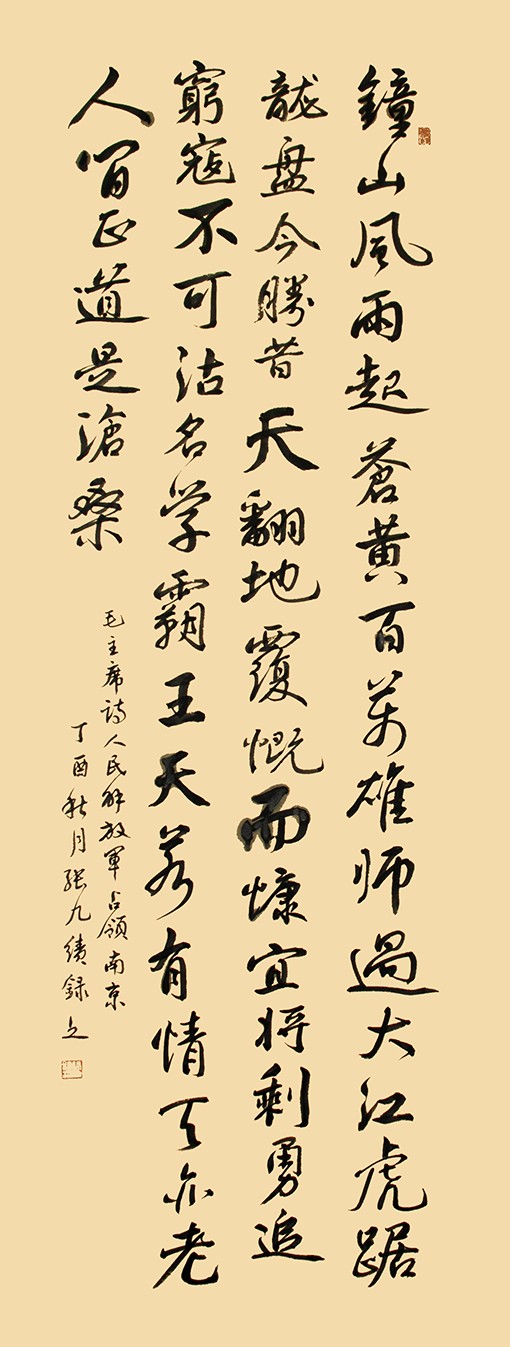 鐘山風雨起蒼黄百万雄师過大江虎踞
龍盘今勝昔天翻地覆慨而慷宜将剩勇追
窮寇不可沽名学霸王天若有情天亦老
人间正道是滄桑
毛主席诗人民解放軍占領南京
丁酉秋月張九绩録之